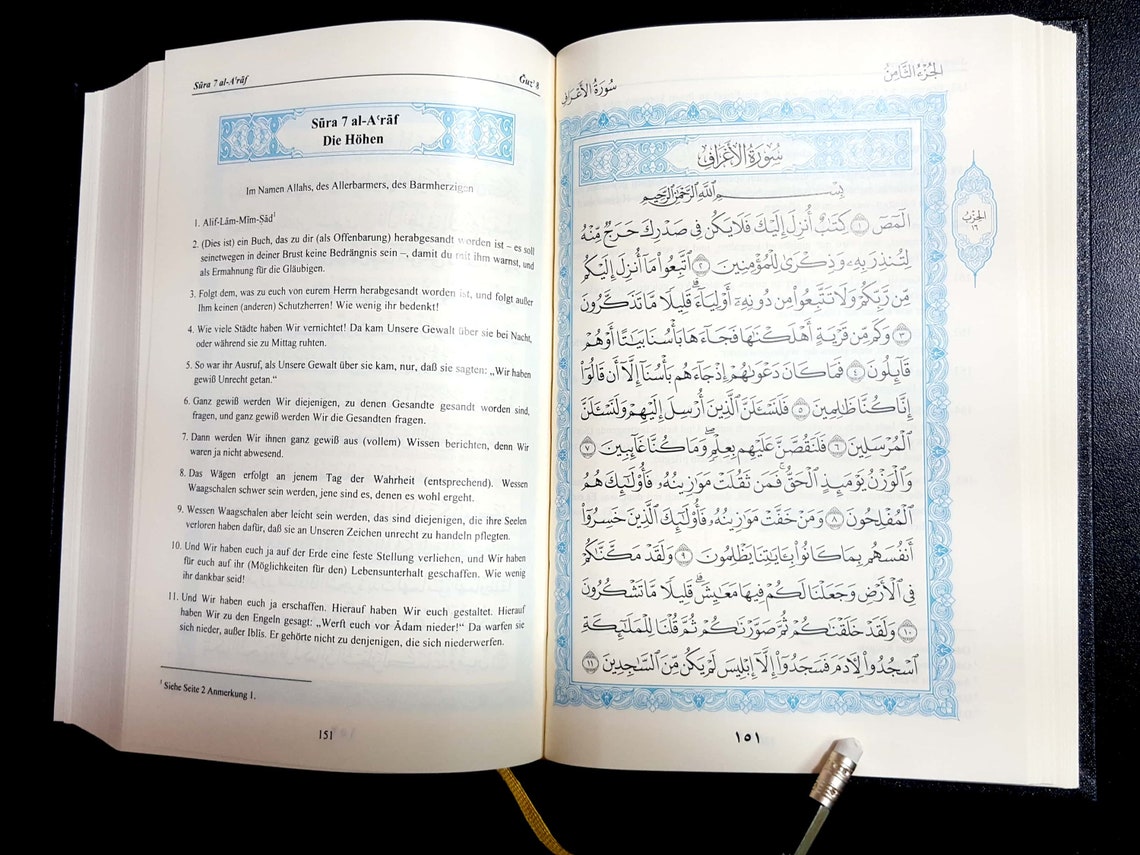 Sūra 7 al-Aʿrāf
Ǧuzʾ 8
Sūra 7 al-Aʿrāf
Die Höhen
Im Namen Allahs, des Allerbarmers, des Barmherzigen
1. Alif-Lām-Mīm-Ṣād¹
2. (Dies ist) ein Buch, das zu dir (als Offenbarung) herabgesandt worden ist – es soll
seinetwegen in deiner Brust keine Bedrängnis sein –, damit du mit ihm warnst, und
als Ermahnung für die Gläubigen.
3. Folgt dem, was zu euch von eurem Herrn herabgesandt worden ist, und folgt außer
Ihm keinen (anderen) Schutzherren! Wie wenig ihr bedenkt!
4. Wie viele Städte haben Wir vernichtet! Da kam Unsere Gewalt über sie bei Nacht,
oder während sie zu Mittag ruhten.
5. So war ihr Ausruf, als Unsere Gewalt über sie kam, nur, daß sie sagten: „Wir haben
gewiß Unrecht getan.“
6. Ganz gewiß werden Wir diejenigen, zu denen Gesandte gesandt worden sind,
fragen, und ganz gewiß werden Wir die Gesandten fragen.
7. Dann werden Wir ihnen ganz gewiß aus (vollem) Wissen berichten, denn Wir
waren ja nicht abwesend.
8. Das Wägen erfolgt an jenem Tag der Wahrheit (entsprechend). Wessen
Waagschalen schwer sein werden, jene sind es, denen es wohl ergeht.
9. Wessen Waagschalen aber leicht sein werden, das sind diejenigen, die ihre Seelen
verloren haben dafür, daß sie an Unseren Zeichen unrecht zu handeln pflegten.
10. Und Wir haben euch ja auf der Erde eine feste Stellung verliehen, und Wir haben
für euch auf ihr (Möglichkeiten für den) Lebensunterhalt geschaffen. Wie wenig
ihr dankbar seid!
11. Und Wir haben euch ja erschaffen. Hierauf haben Wir euch gestaltet. Hierauf
haben Wir zu den Engeln gesagt: „Werft euch vor Ādam nieder!“ Da warfen sie
sich nieder, außer Iblīs. Er gehörte nicht zu denjenigen, die sich niederwerfen.
¹ Siehe Seite 2 Anmerkung 1.
151
الجُزْءُ الثَّامِنُ
سُورَةُ الأَعْرَافِ
سُورَةُ الأَعْرَافِ
بِسْمِ ٱللَّهِ ٱلرَّحْمَٰنِ ٱلرَّحِيمِ
الٓمٓصٓ ١ كِتَٰبٌ أُنزِلَ إِلَيْكَ فَلَا يَكُن فِى صَدْرِكَ حَرَجٌ مِّنْهُ
لِتُنذِرَ بِهِۦ وَذِكْرَىٰ لِلْمُؤْمِنِينَ ٢ ٱتَّبِعُوا۟ مَآ أُنزِلَ إِلَيْكُم
مِّن رَّبِّكُمْ وَلَا تَتَّبِعُوا۟ مِن دُونِهِۦٓ أَوْلِيَآءَ ۗ قَلِيلًا مَّا تَذَكَّرُونَ
٣ وَكَم مِّن قَرْيَةٍ أَهْلَكْنَٰهَا فَجَآءَهَا بَأْسُنَا بَيَٰتًا أَوْ هُمْ
قَآئِلُونَ ٤ فَمَا كَانَ دَعْوَىٰهُمْ إِذْ جَآءَهُم بَأْسُنَآ إِلَّآ أَن قَالُوٓا۟
إِنَّا كُنَّا ظَٰلِمِينَ ٥ فَلَنَسْـَٔلَنَّ ٱلَّذِينَ أُرْسِلَ إِلَيْهِمْ وَلَنَسْـَٔلَنَّ
ٱلْمُرْسَلِينَ ٦ فَلَنَقُصَّنَّ عَلَيْهِم بِعِلْمٍ ۖ وَمَا كُنَّا غَآئِبِينَ ٧
وَٱلْوَزْنُ يَوْمَئِذٍ ٱلْحَقُّ ۚ فَمَن ثَقُلَتْ مَوَٰزِينُهُۥ فَأُو۟لَٰٓئِكَ هُمُ
ٱلْمُفْلِحُونَ ٨ وَمَنْ خَفَّتْ مَوَٰزِينُهُۥ فَأُو۟لَٰٓئِكَ ٱلَّذِينَ خَسِرُوٓا۟
أَنفُسَهُم بِمَا كَانُوا۟ بِـَٔايَٰتِنَا يَظْلِمُونَ ٩ وَلَقَدْ مَكَّنَّٰكُمْ
فِى ٱلْأَرْضِ وَجَعَلْنَا لَكُمْ فِيهَا مَعَٰيِشَ ۗ قَلِيلًا مَّا تَشْكُرُونَ
١٠ وَلَقَدْ خَلَقْنَٰكُمْ ثُمَّ صَوَّرْنَٰكُمْ ثُمَّ قُلْنَا لِلْمَلَٰٓئِكَةِ
ٱسْجُدُوا۟ لِـَٔادَمَ فَسَجَدُوٓا۟ إِلَّآ إِبْلِيسَ لَمْ يَكُن مِّنَ ٱلسَّٰجِدِينَ ١١
الحِزْبُ
١٦
١٥١